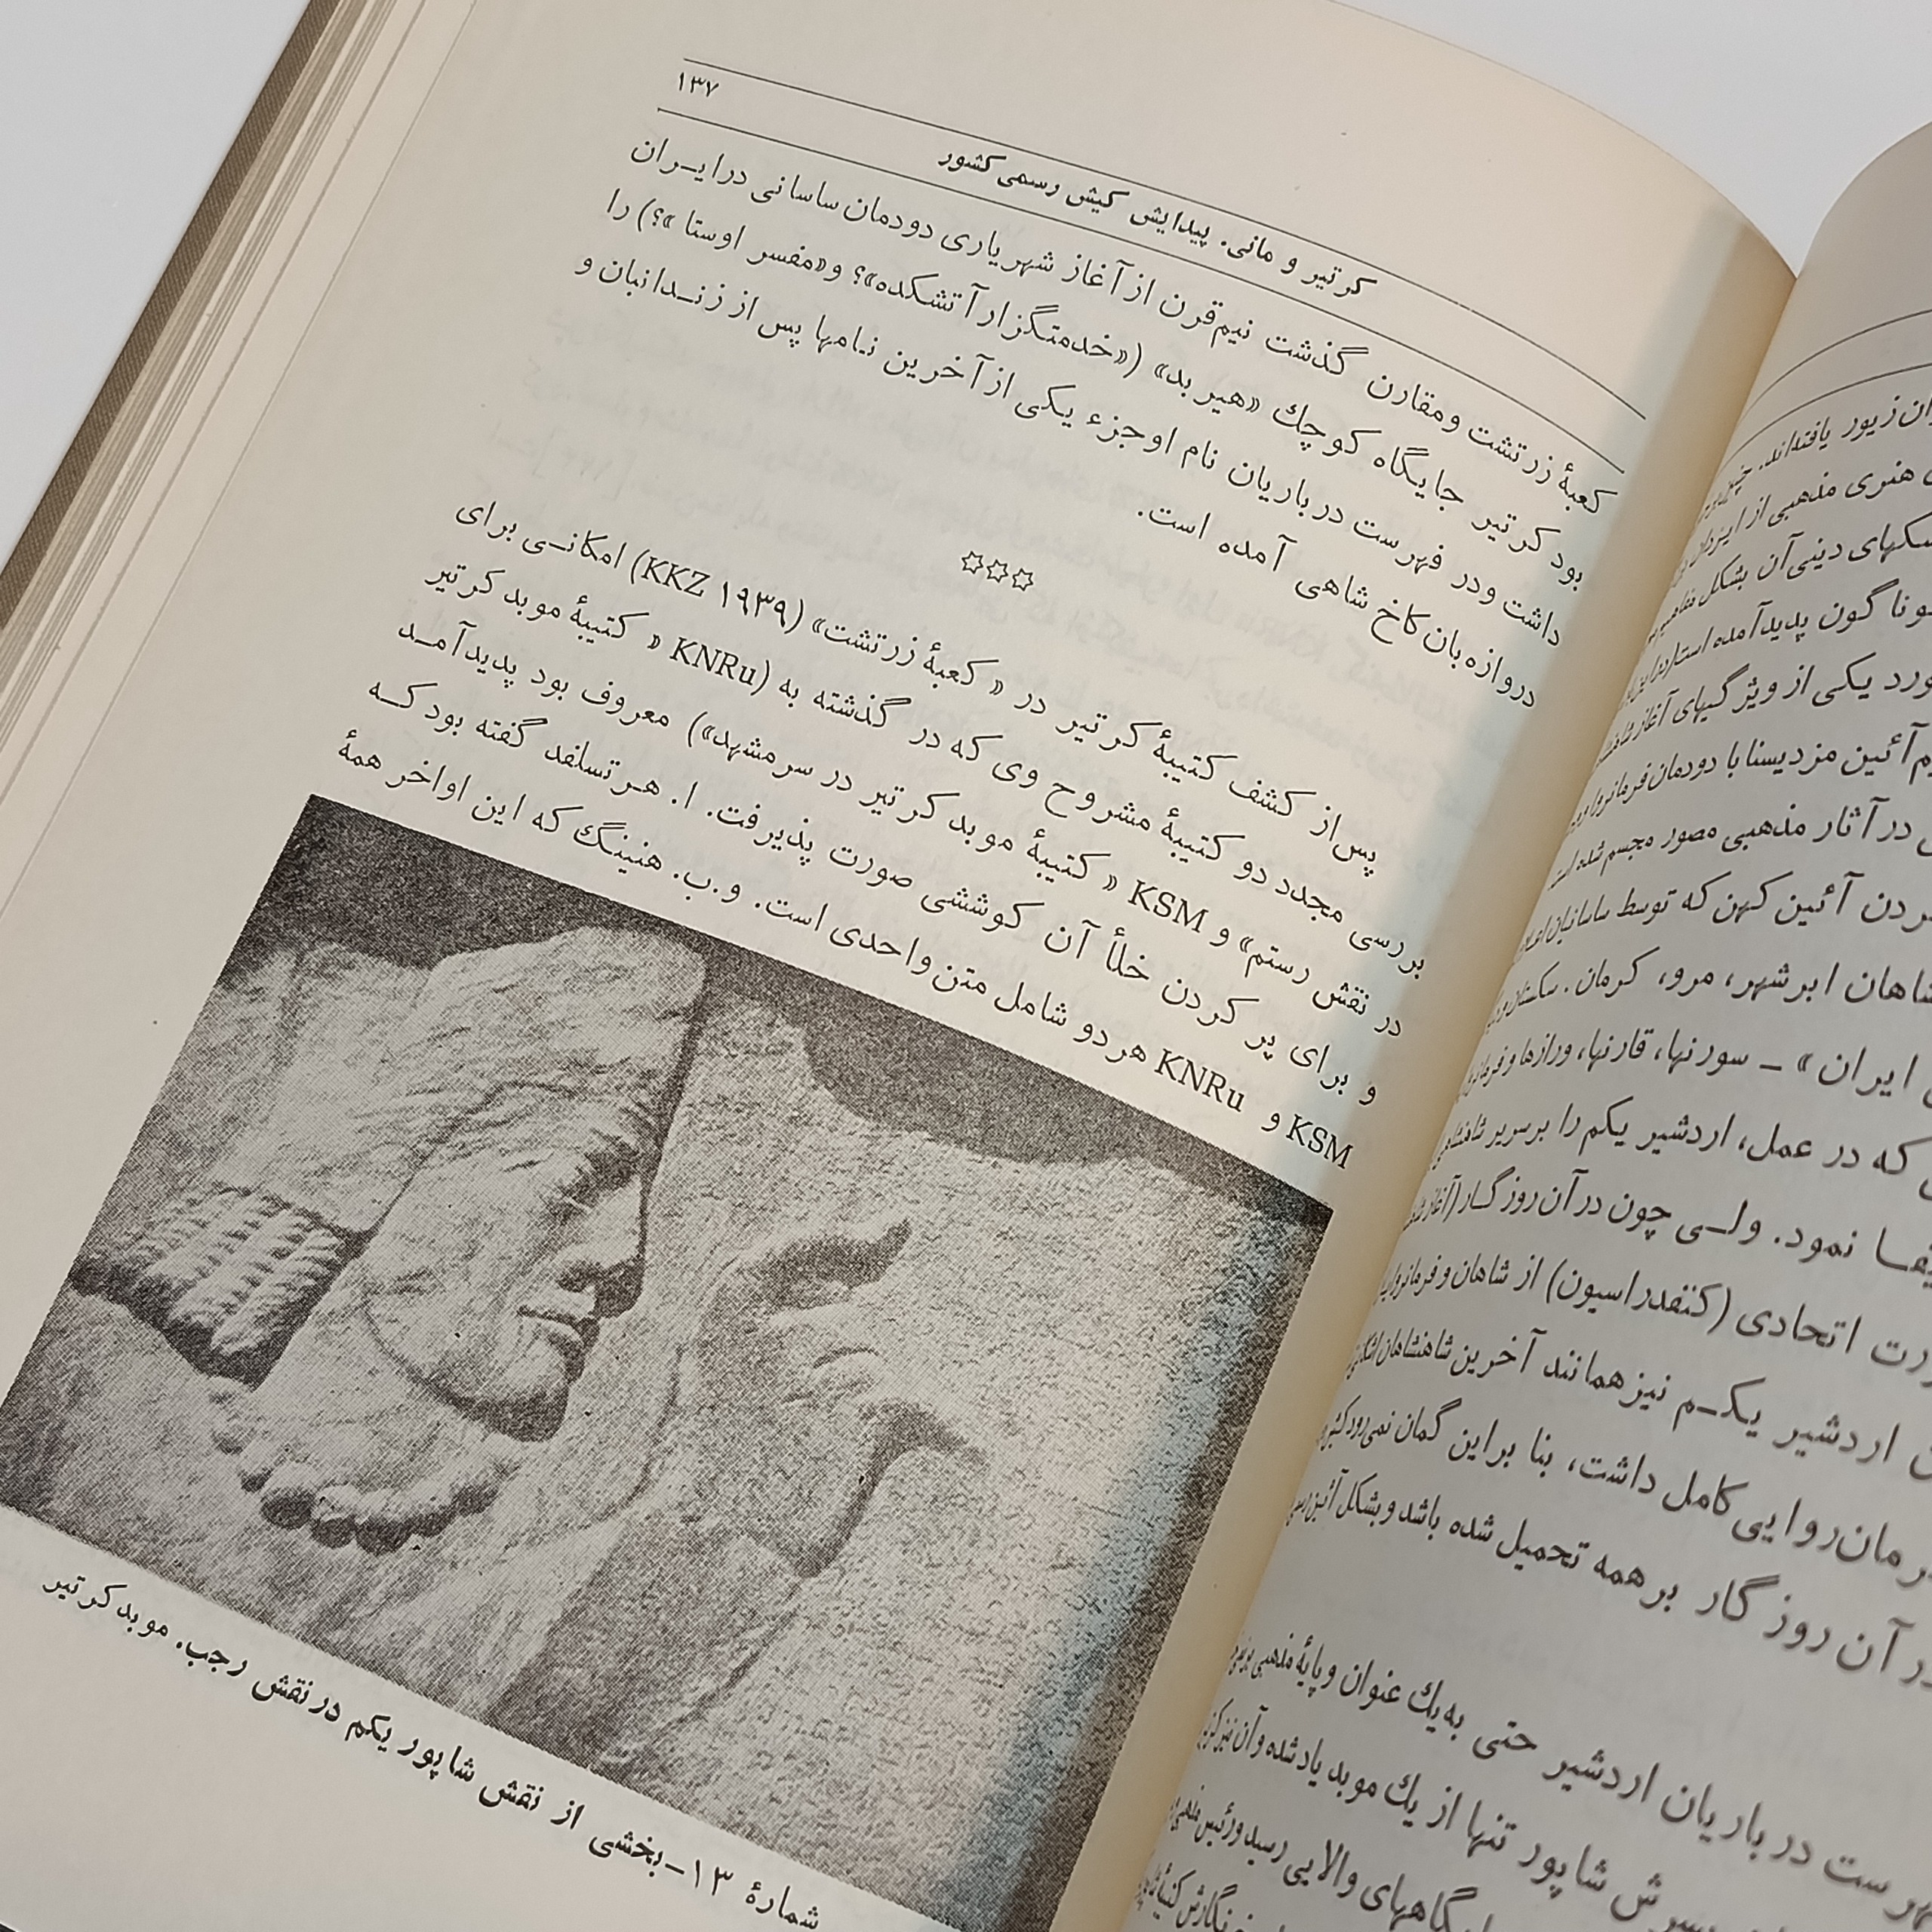 ۱۳۷
کرتیر و مانی. پیدایش کیش رسمی کشور
کعبهٔ زرتشت ومقارن گذشت نیم‌قرن از آغاز شهریاری دودمان ساسانی درایـران
بود کرتیر جایگاه کوچك «هیربد» («خدمتگزار آتشکده»؟ و«مفسر اوستا »؟) را
داشت ودر فهرست درباریان نام اوجزء یکی ازآخرین نامها پس از زنـدانبان و
دروازه‌بان کاخ شاهی آمده است.
✡✡✡
پس‌از کشف کتیبهٔ کرتیر در « کعبهٔ زرتشت» (۱۹۳۹ KKZ) امکانـی برای
بررسی مجدد دو کتیبهٔ مشروح وی که در گذشته به (KNRu « کتیبهٔ موبد کرتیر
در نقش رستم» و KSM « کتیبهٔ موبد کرتیر در سرمشهد») معروف بود پدیدآمـد
و برای پر کردن خلأ آن کوششی صورت پذیرفت. ا. هـرتسلفد گفته بود کـه
KSM و KNRu هردو شامل متن واحدی است. و.ب. هنینگ که این اواخر همهٔ
شمارهٔ ۱۳-بخشی از نقش شاپور یکم درنقش رجب. موبدکرتیر
زیور یافته‌اند.
هنری مذهبی از
دینی‌آن بشکل
گون پدیدآمده است
یکی از ویژگیهای آغاز
آئین مزدیسنا با دودمان
در آثار مذهبی مصور مجسم شده است
آئین کهن که توسط ساسانیان
ابرشهر، مرو، کرمان. سکستان
ایران » ــ سورنها، قارنها، ورازها و
که در عمل، اردشیر یکم را برسریر
نمود. ولـی چون در آن روزگـار (آغاز
اتحادی (کنفدراسیون) از شاهان و
اردشیر یکـم نیز همانند آخرین شاهنشاهان
کامل داشت، بنا براین گمان نمی‌رود
آن روزگار برهمه تحمیل شده باشد و بشکل آئین
درباریان اردشیر حتی به‌یك عنوان و پایهٔ مذهبی
شاپور تنها از یك موبد یاد شده و آن نیز
والایی رسید و